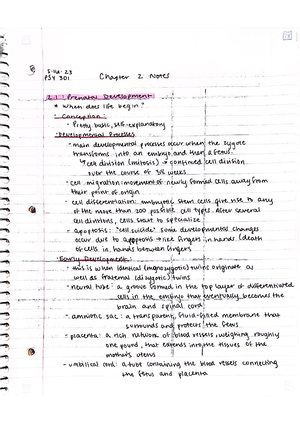 PSY 301
Chapter 2 Notes
2.1: Prenatal Development
* When does life begin?
Conception:
- Pretty basic, self-explanatory
Developmental Processes
- main developmental processes occur when the zygote
transforms into an embryo and then a fetus.
↳ cell division (mitosis) → continued cell division
over the course of 38 weeks
- cell migration: movement of newly formed cells away from
their point of origin
- cell differentiation: embryonic stem cells give rise to any
of the more than 200 possible cell types. After several
cell divisions, cells start to specialize
- apoptosis: "cell suicide" some developmental changes
occur due to apoptosis → like fingers in hands (death
of cells in hands between fingers
Early Development:
- this is when identical (monozygotic) twins originate as
well as fraternal (dizygotic) twins
- neural tube: a groove formed in the top layer of differentiated
cells in the embryo that eventually becomes the
brain and spinal cord
- amniotic sac: a transparent, fluid-filled membrane that
surrounds and protects the fetus
- placenta: a rich network of blood vessels, weighing roughly
one pound, that extends into the tissues of the
mother's uterus
- umbilical cord: a tube containing the blood vessels connecting
the fetus and placenta